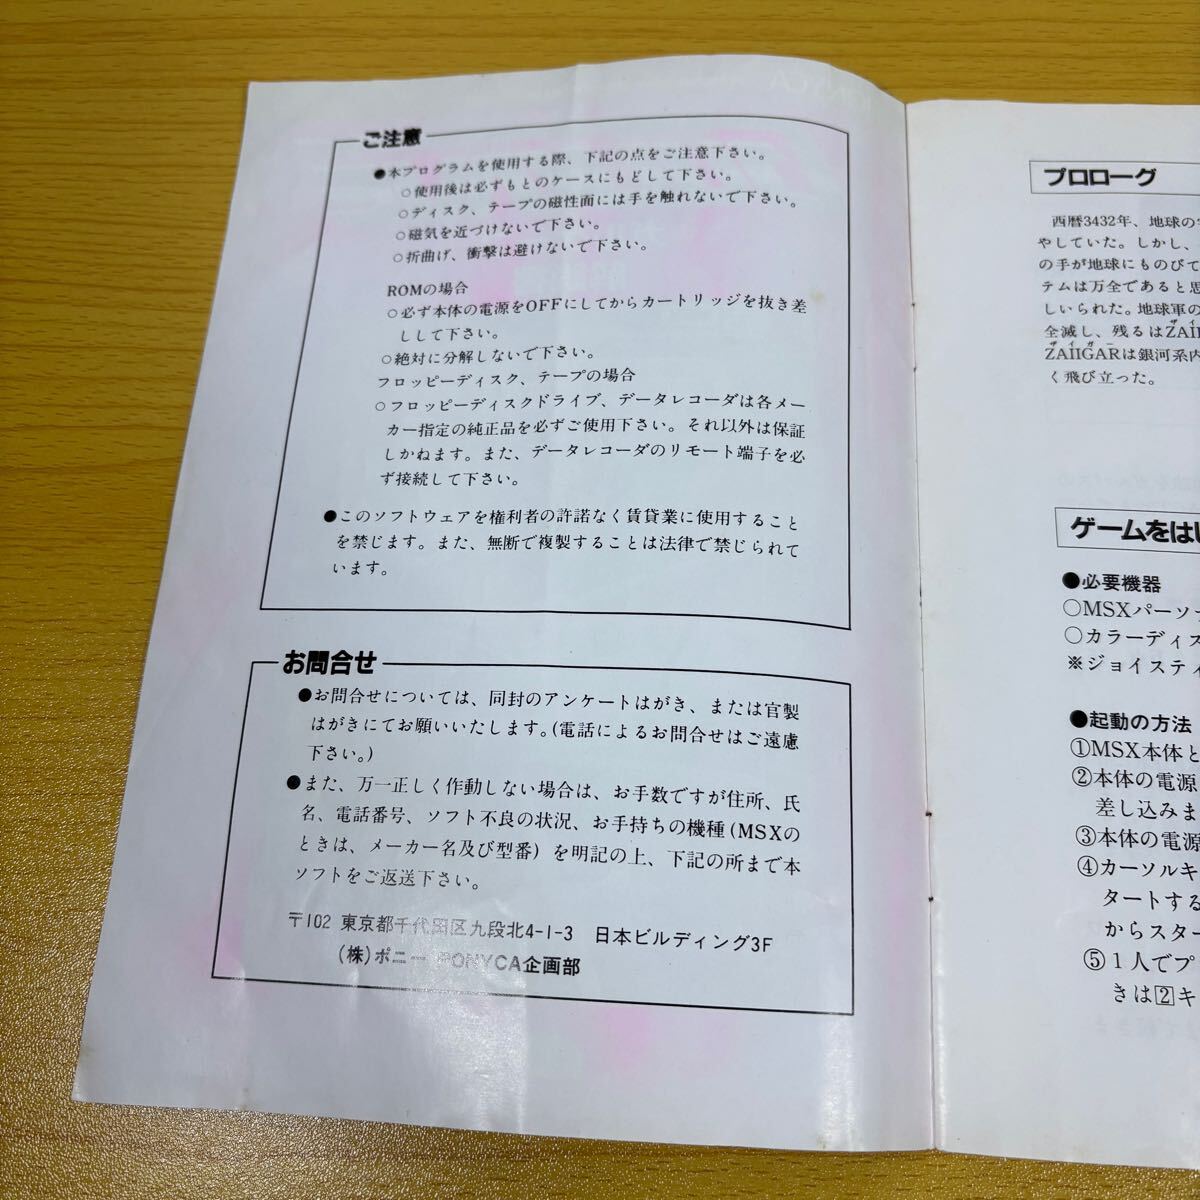 ご注意
●本プログラムを使用する際、下記の点をご注意下さい。
○使用後は必ずもとのケースにもどして下さい。
○ディスク、テープの磁性面には手を触れないで下さい。
○磁気を近づけないで下さい。
○折曲げ、衝撃は避けないで下さい。
ROMの場合
○必ず本体の電源をOFFにしてからカートリッジを抜き差
しして下さい。
○絶対に分解しないで下さい。
フロッピーディスク、テープの場合
○フロッピーディスクドライブ、データレコーダは各メー
カー指定の純正品を必ずご使用下さい。それ以外は保証
しかねます。また、データレコーダのリモート端子を必
ず接続して下さい。
●このソフトウェアを権利者の許諾なく賃貸業に使用すること
を禁じます。また、無断で複製することは法律で禁じられて
います。
お問合せ
●お問合せについては、同封のアンケートはがき、または官製
はがきにてお願いいたします。(電話によるお問合せはご遠慮
下さい。)
●また、万一正しく作動しない場合は、お手数ですが住所、氏
名、電話番号、ソフト不良の状況、お手持ちの機種(MSXの
ときは、メーカー名及び型番)を明記の上、下記の所まで本
ソフトをご返送下さい。
〒102 東京都千代田区九段北4-1-3 日本ビルディング3F
(株)ポニー PONYCA企画部
プロローグ
西暦3432年、地球の
やしていた。しかし、
の手が地球にものびて
テムは万全であると思
しいられた。地球軍の
全滅し、残るはZAII
ザイガー
ZAIIGARは銀河系内
く飛び立った。
ゲームをは
●必要機器
○MSXパーソ
○カラーディス
※ジョイスティ
●起動の方法
①MSX本体と
②本体の電源
差し込みま
③本体の電源
④カーソルキ
タートする
からスター
⑤1人でプ
きは2キ